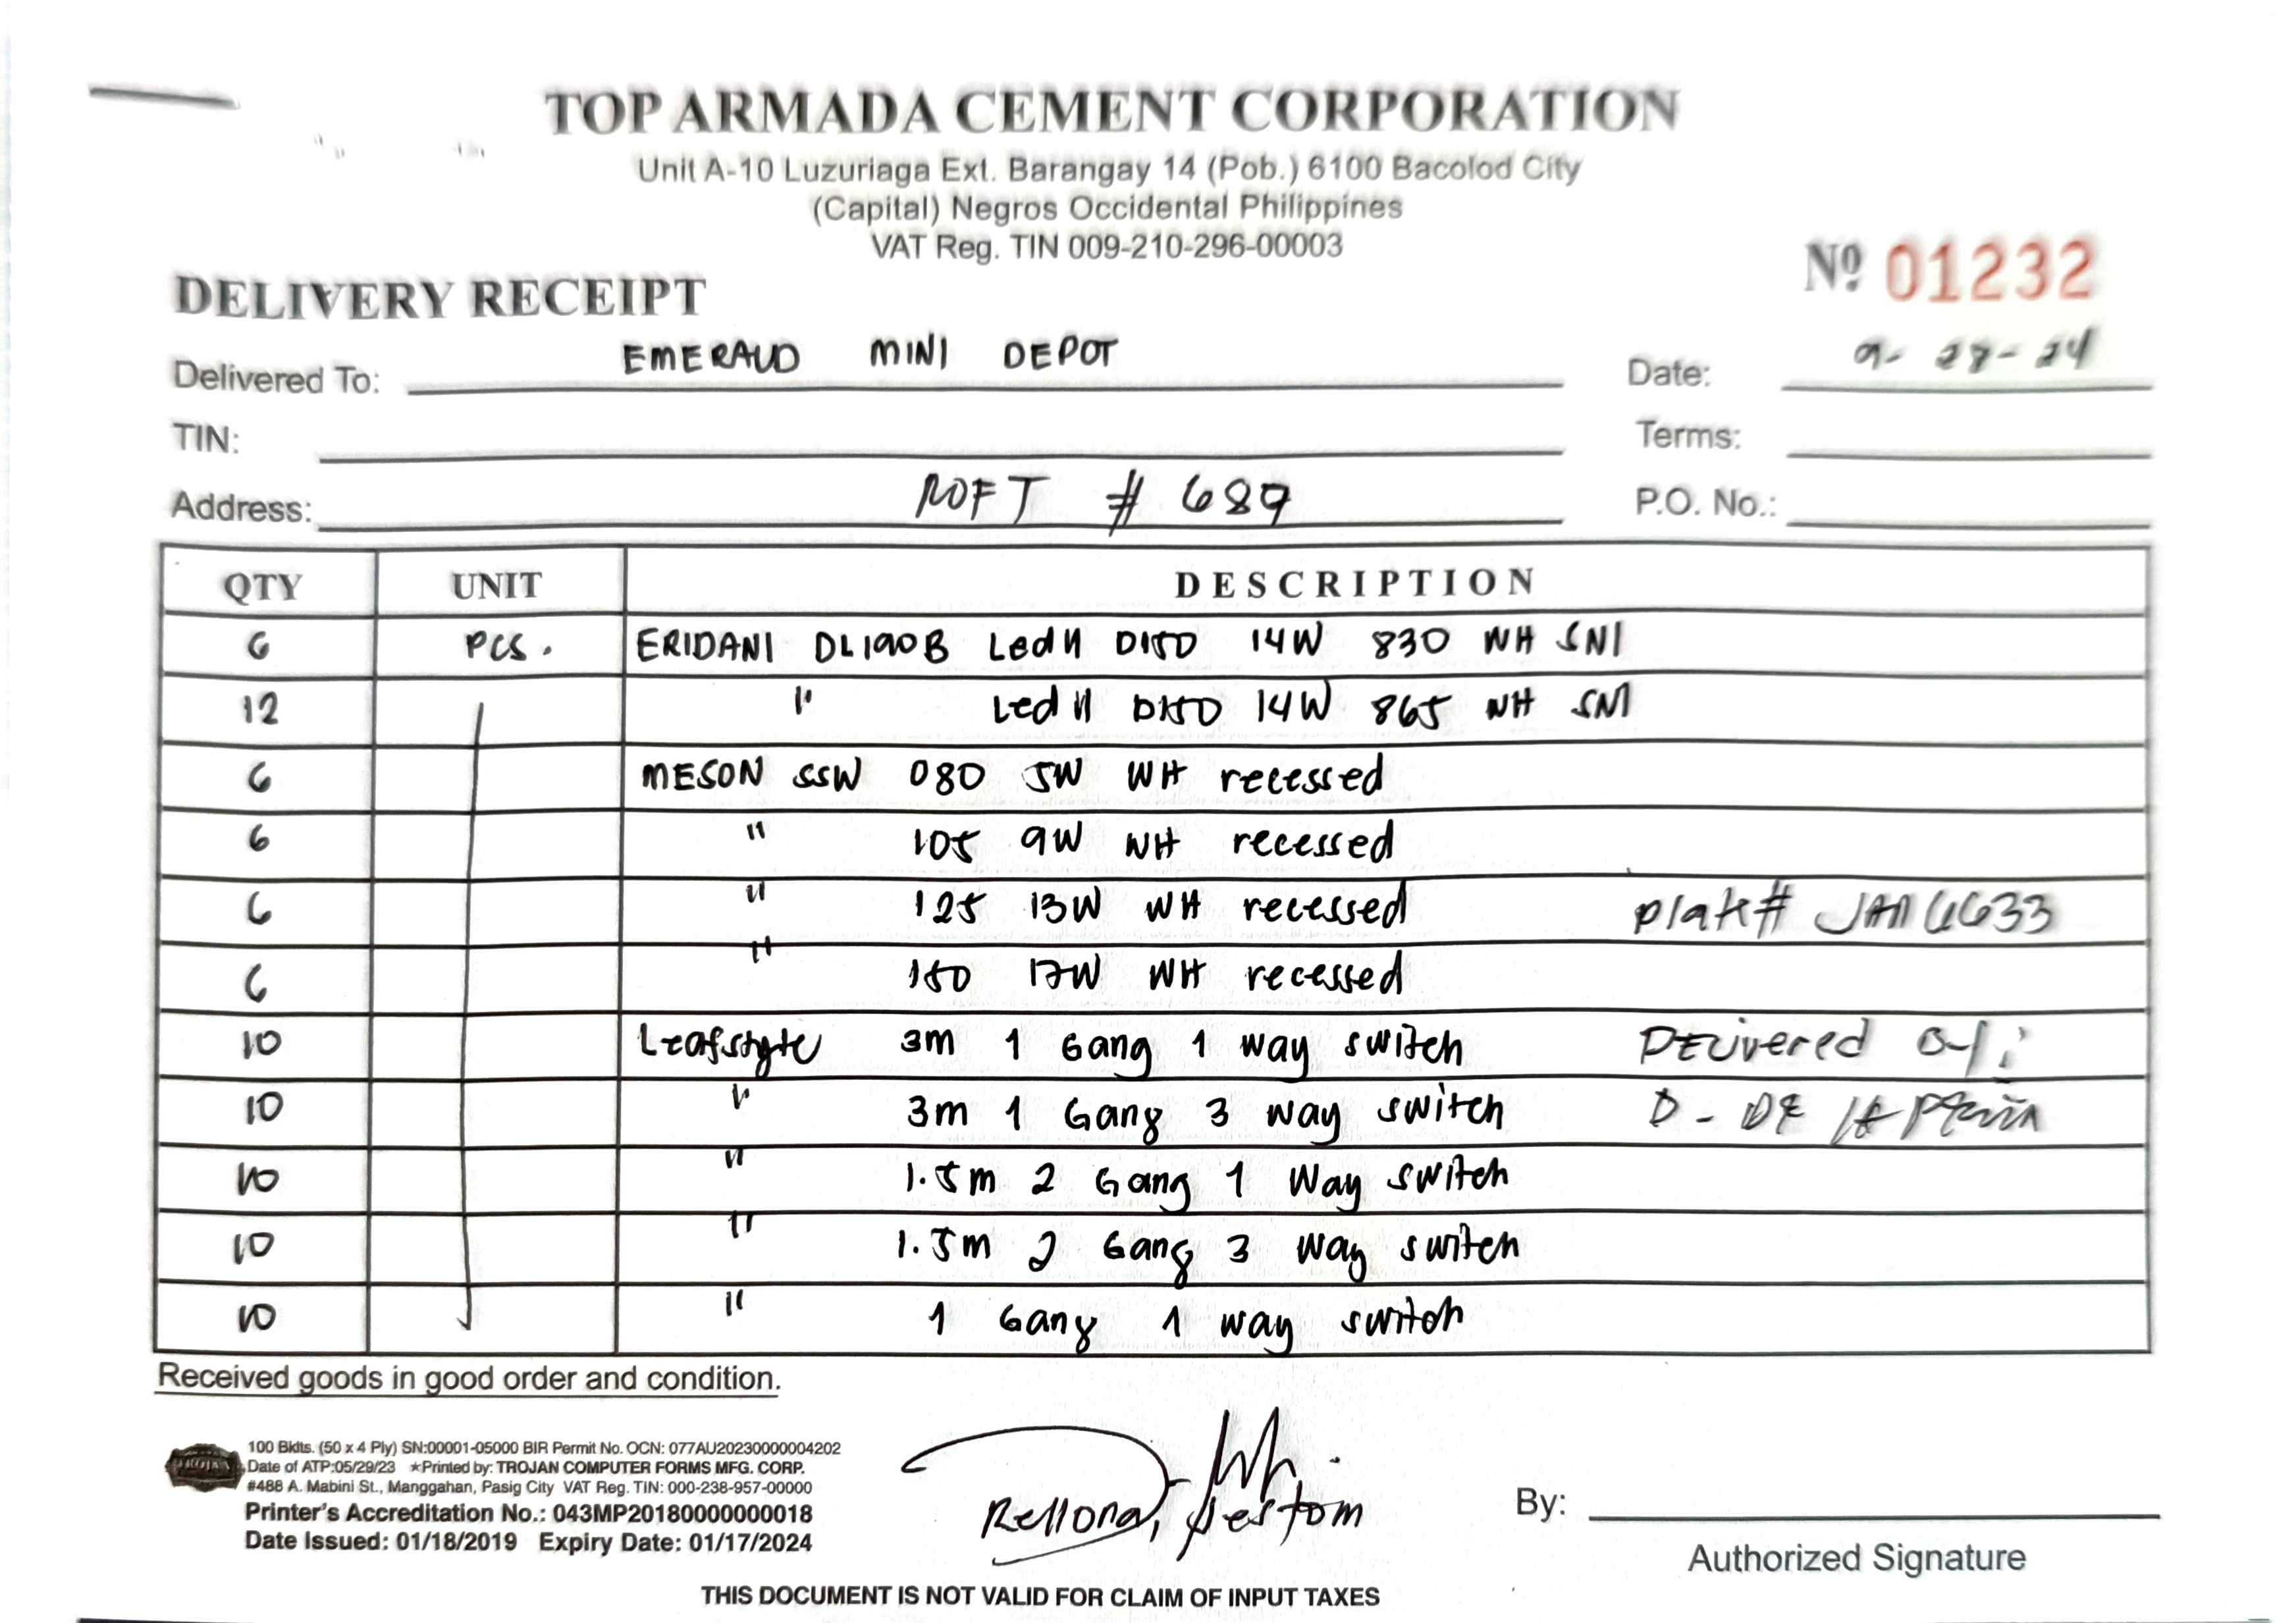 TOP ARMADA CEMENT CORPORATION
Unit A-10 Luzuriaga Ext. Barangay 14 (Pob.) 6100 Bacolod City
(Capital) Negros Occidental Philippines
VAT Reg. TIN 009-210-296-00003
Nº 01232
DELIVERY RECEIPT
Delivered To: EMERAUD MINI DEPOT
Date: 9-28-24
TIN:
Terms:
Address: ROFT # 689
P.O. No.:
QTY UNIT DESCRIPTION
6 PCS. ERIDANI DL190B Led11 D150 14W 830 WH SNI
12 " Led 11 D150 14W 865 WH SNI
6 MESON SSW 080 5W WH recessed
6 " 105 9W WH recessed
6 " 125 13W WH recessed Plate#
6 " 150 17W WH recessed
10 Leafstyle 3m 1 Gang 1 way switch Delivered
10 " 3m 1 Gang 3 way switch D - DE
10 " 1.5m 2 Gang 1 Way switch
10 " 1.5m 2 Gang 3 Way switch
10 " 1 Gang 1 way switch
Received goods in good order and condition.
100 Bklts. (50 x 4 Ply) SN:00001-05000 BIR Permit No. OCN: 077AU20230000004202
TROJAN
Date of ATP:05/29/23 ★Printed by: TROJAN COMPUTER FORMS MFG. CORP.
#488 A. Mabini St., Manggahan, Pasig City VAT Reg. TIN: 000-238-957-00000
Printer's Accreditation No.: 043MP20180000000018
Date Issued: 01/18/2019 Expiry Date: 01/17/2024
Rellona,
By:
Authorized Signature
THIS DOCUMENT IS NOT VALID FOR CLAIM OF INPUT TAXES